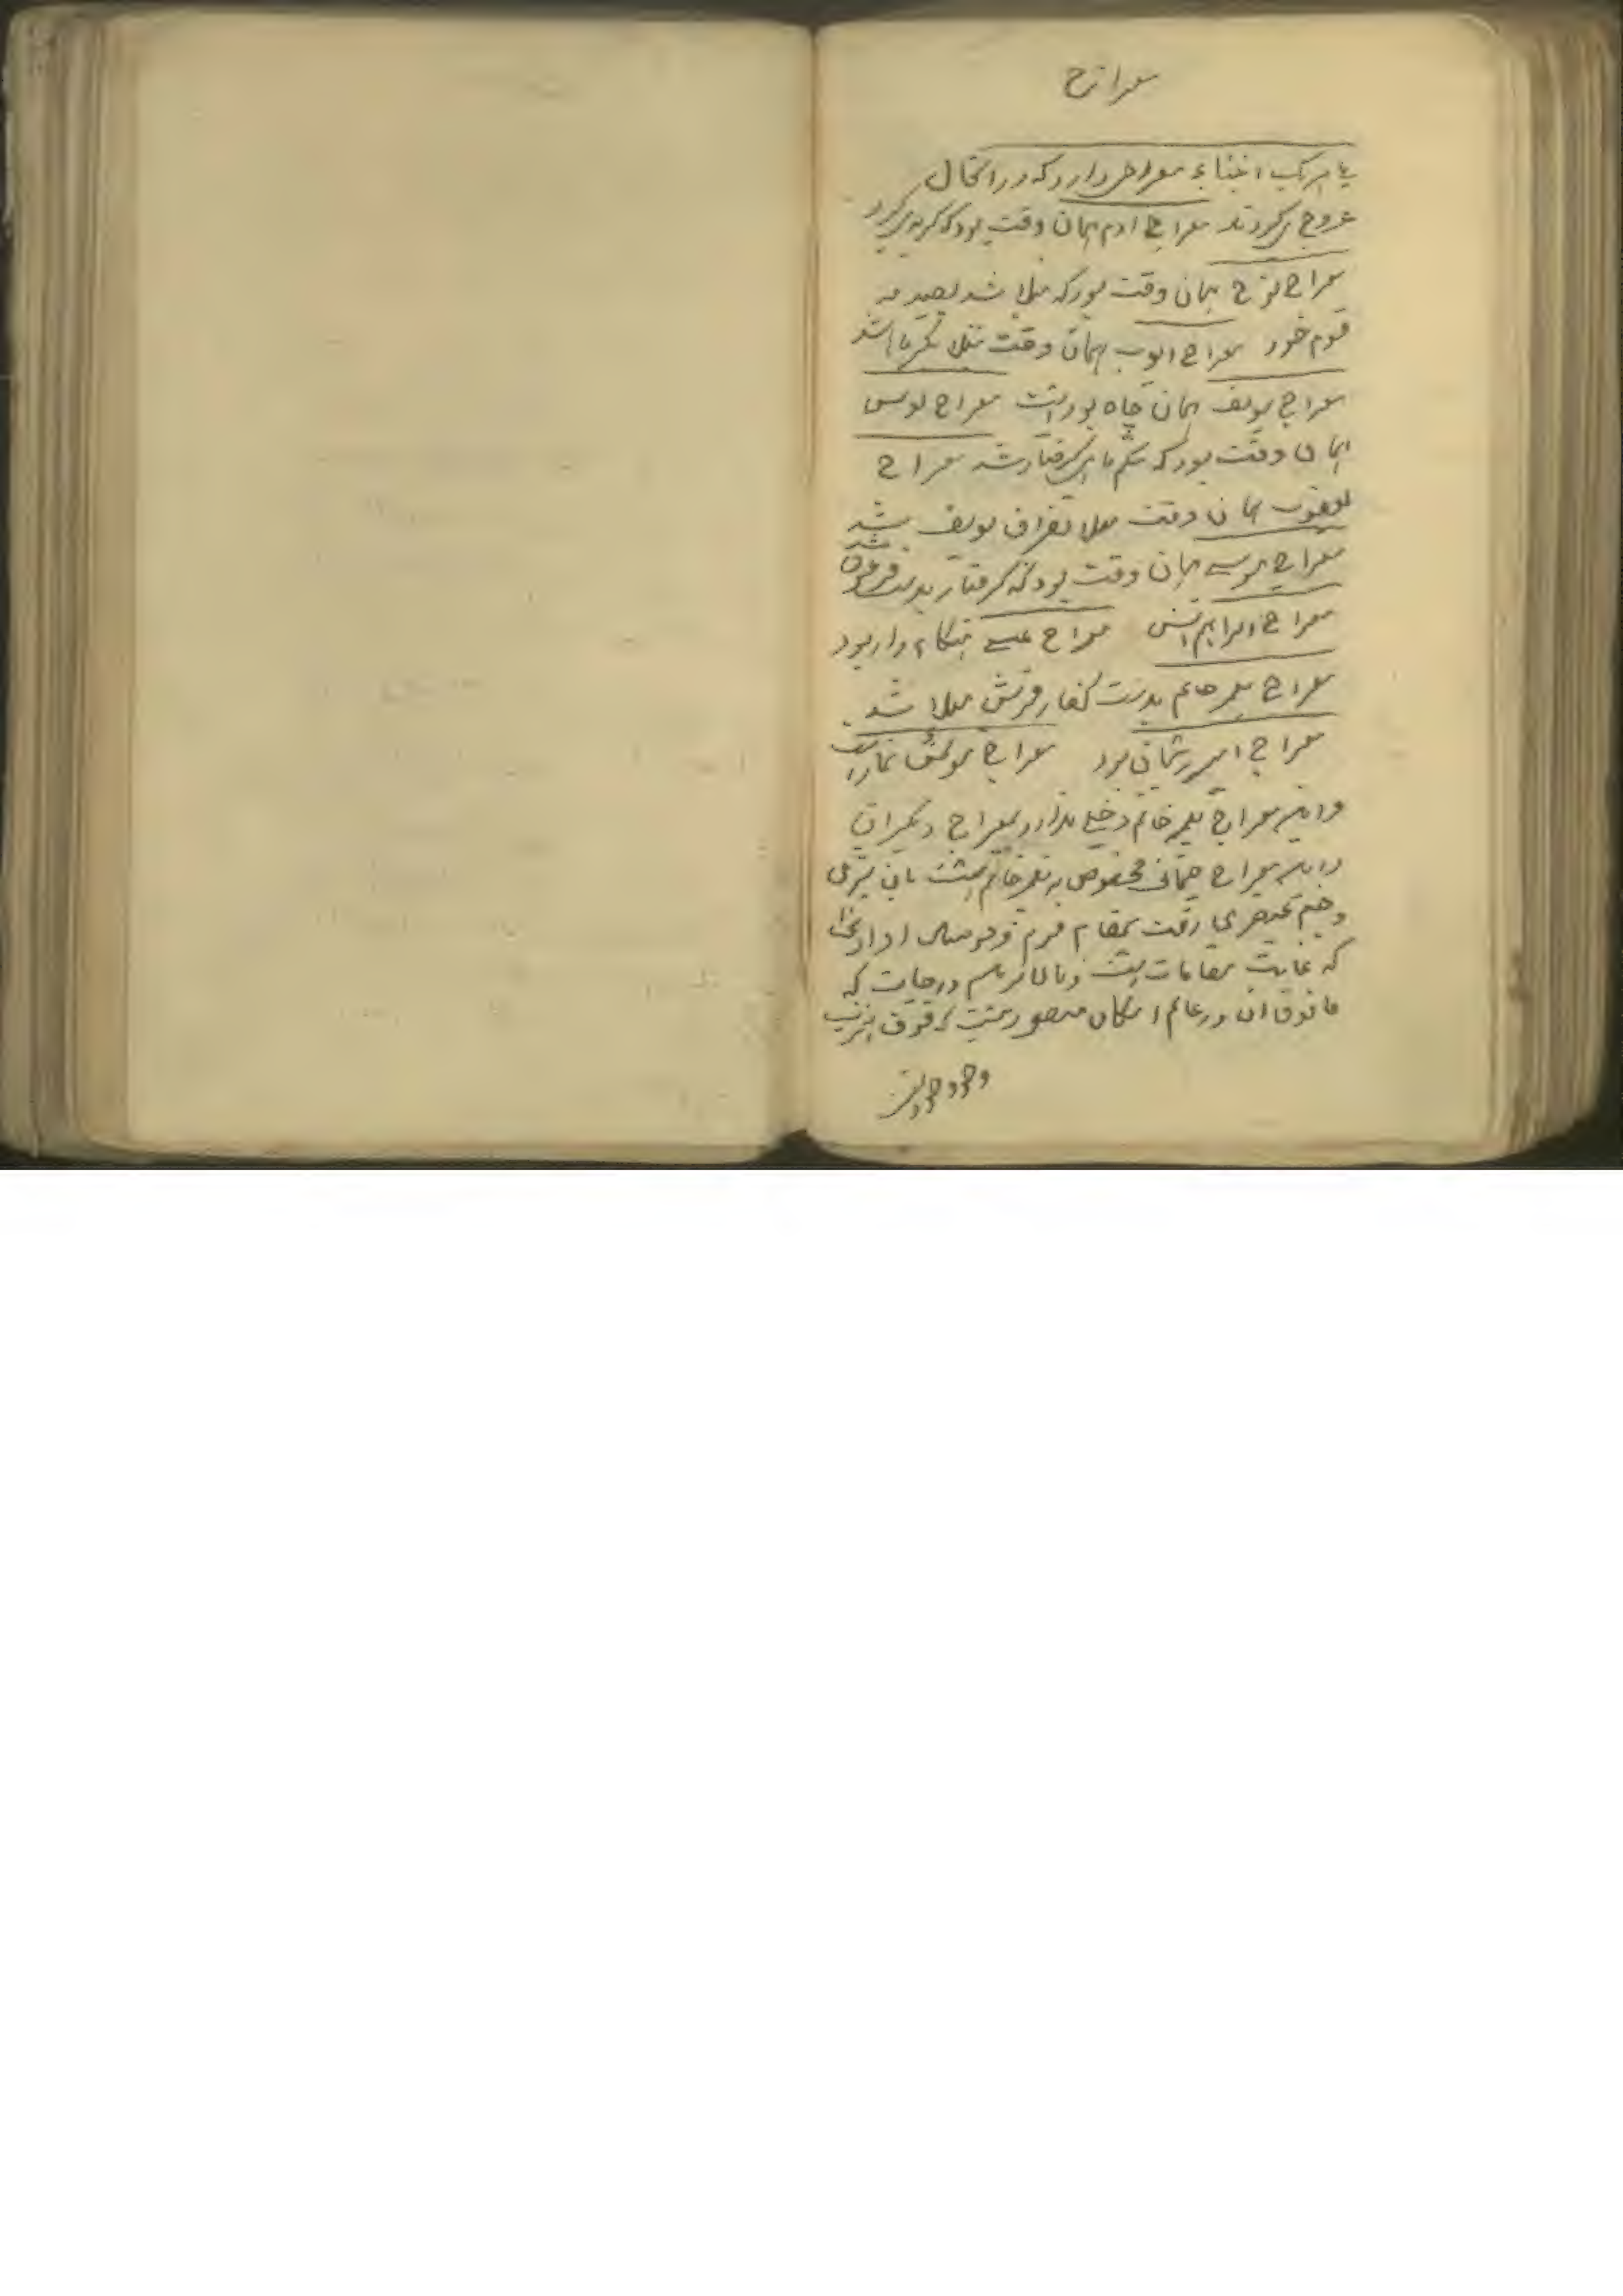 معراج
هر یک انبیاء معراجی دارد که در انحال
عروج میکردند معراج ادم همان وقت بود که گریه میکرد
معراج نوح همان وقت بود که مبتلا شد بصدمه
قوم خود معراج ایوب همان وقت مبتلا بکرمها شد
معراج یوسف همان چاه بود است معراج یونس
همان وقت بود که بشکم ماهی گرفتار شد معراج
یعقوب همان وقت مبتلا بفراق یوسف شد
معراج موسی همان وقت بود که گرفتار بدست فرعون شد
معراج ابراهیم اتش معراج عیسی هنگام دار بود
معراج پیغمبر خاتم بدست کفار قریش مبتلا شد
معراج امیر بود معراج مؤمن نماز است
و این معراج پیغمبر خاتم دخلی ندارد بمعراج دیگران
و این معراج جسمانی مخصوص به پیغمبر خاتم است بدن بشری
و جسم عنصری رفت بمقام قرب قوسین او ادنی
که غایت مقامات است و بالاترین درجات که
مافوق ان در عالم امکان متصور نیست که فوق